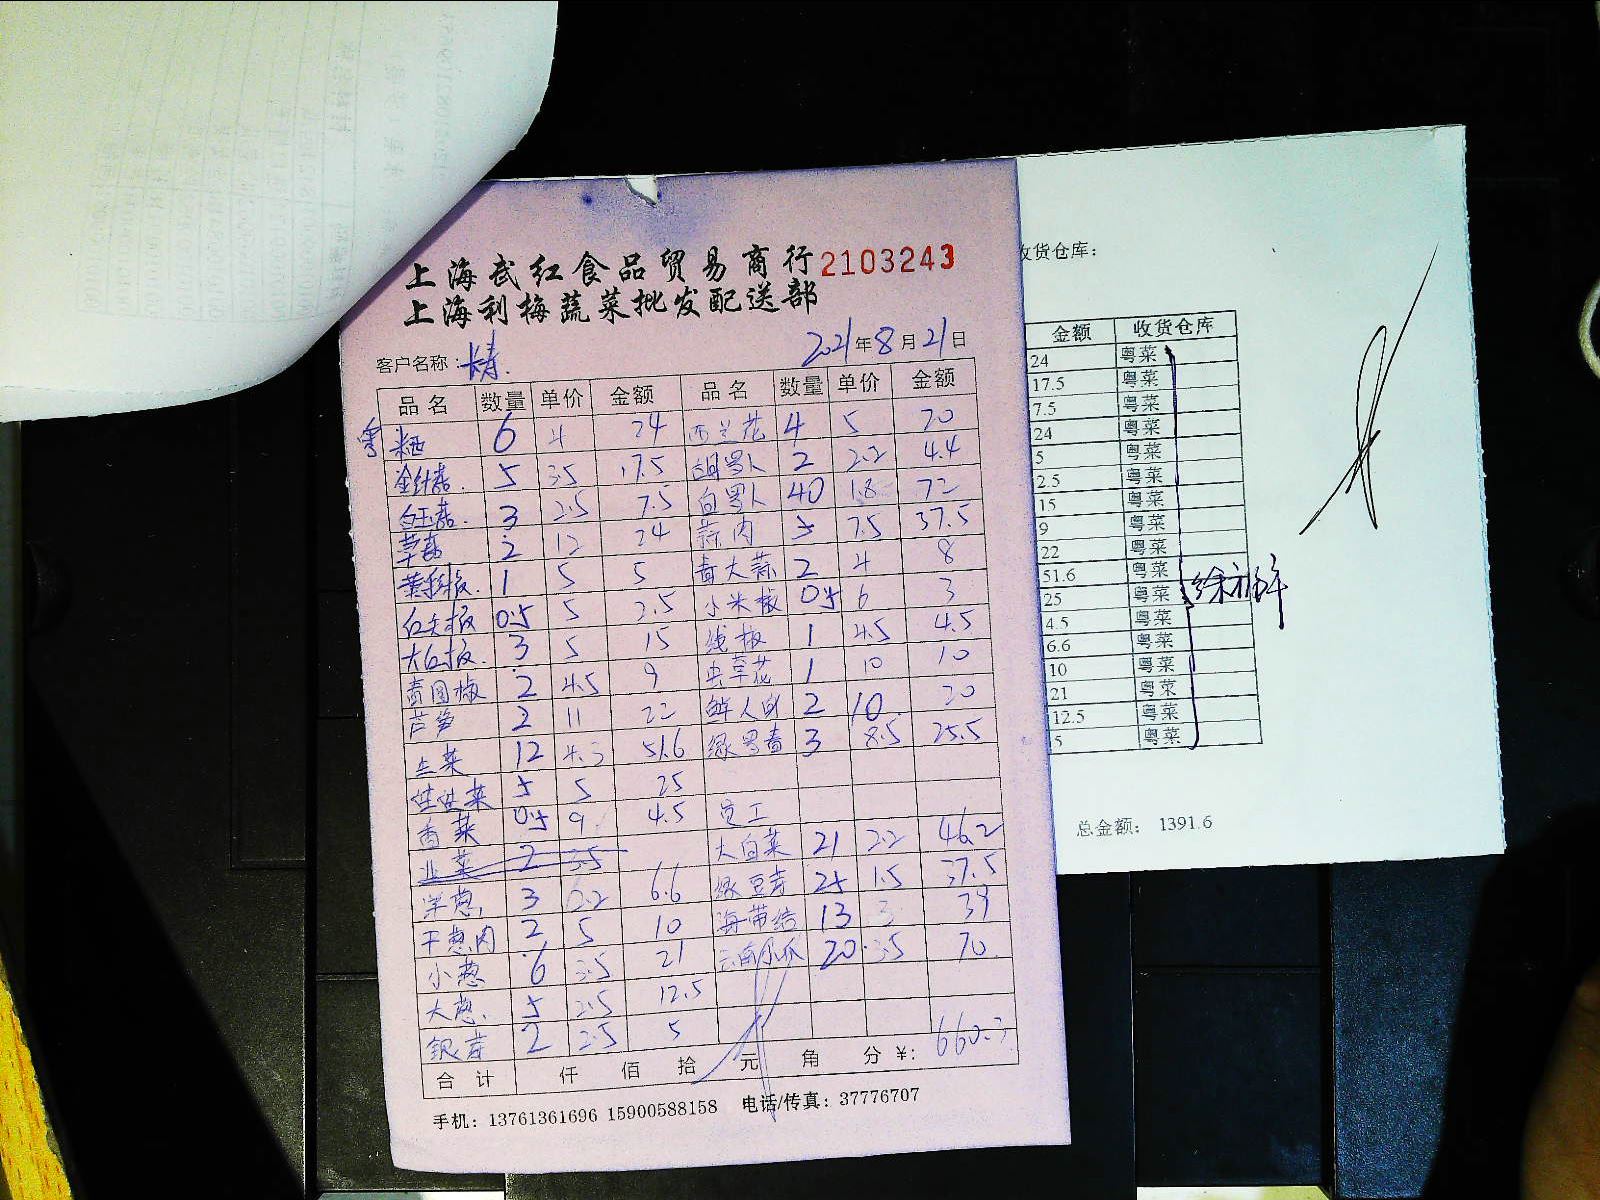 上海武红食品贸易商行 2103243
上海利梅蔬菜批发配送部
客户名称: 2021年8月21日
品名 数量 单价 金额 品名 数量 单价 金额
粤 6 4 24 西兰花 4 5 20
金针菇 5 3.5 17.5 胡罗卜 2 2.2 4.4
白玉菇 3 2.5 7.5 白罗卜 40 1.8 72
草菇 2 12 24 蒜肉 5 7.5 37.5
黄彩椒 1 5 5 青大蒜 2 4 8
红尖椒 0.5 5 2.5 小米椒 0.5 6 3
3 5 15 线椒 1 4.5 4.5
青圆椒 2 4.5 9 虫草花 1 10 10
芦笋 2 11 22 2 10 20
生菜 12 4.3 51.6 3 8.5 25.5
5 5 25
香菜 0.5 9 4.5 员工
韭菜 2 3.5 大白菜 21 2.2 46.2
洋葱 3 2.2 6.6 绿豆芽 25 1.5 37.5
干葱肉 2 5 10 海带结 13 3 39
小葱 6 3.5 21 20 3.5 70
大葱 5 2.5 12.5
银芽 2 2.5 5
合计 仟 佰 拾 元 角 分 ¥: 660.3
手机: 13761361696 15900588158 电话/传真: 37776707
收货仓库:
金额 收货仓库
24 粤菜
17.5 粤菜
7.5 粤菜
24 粤菜
5 粤菜
2.5 粤菜
15 粤菜
9 粤菜
22 粤菜
51.6 粤菜
25 粤菜
4.5 粤菜
6.6 粤菜
10 粤菜
21 粤菜
12.5 粤菜
5 粤菜
总金额: 1391.6